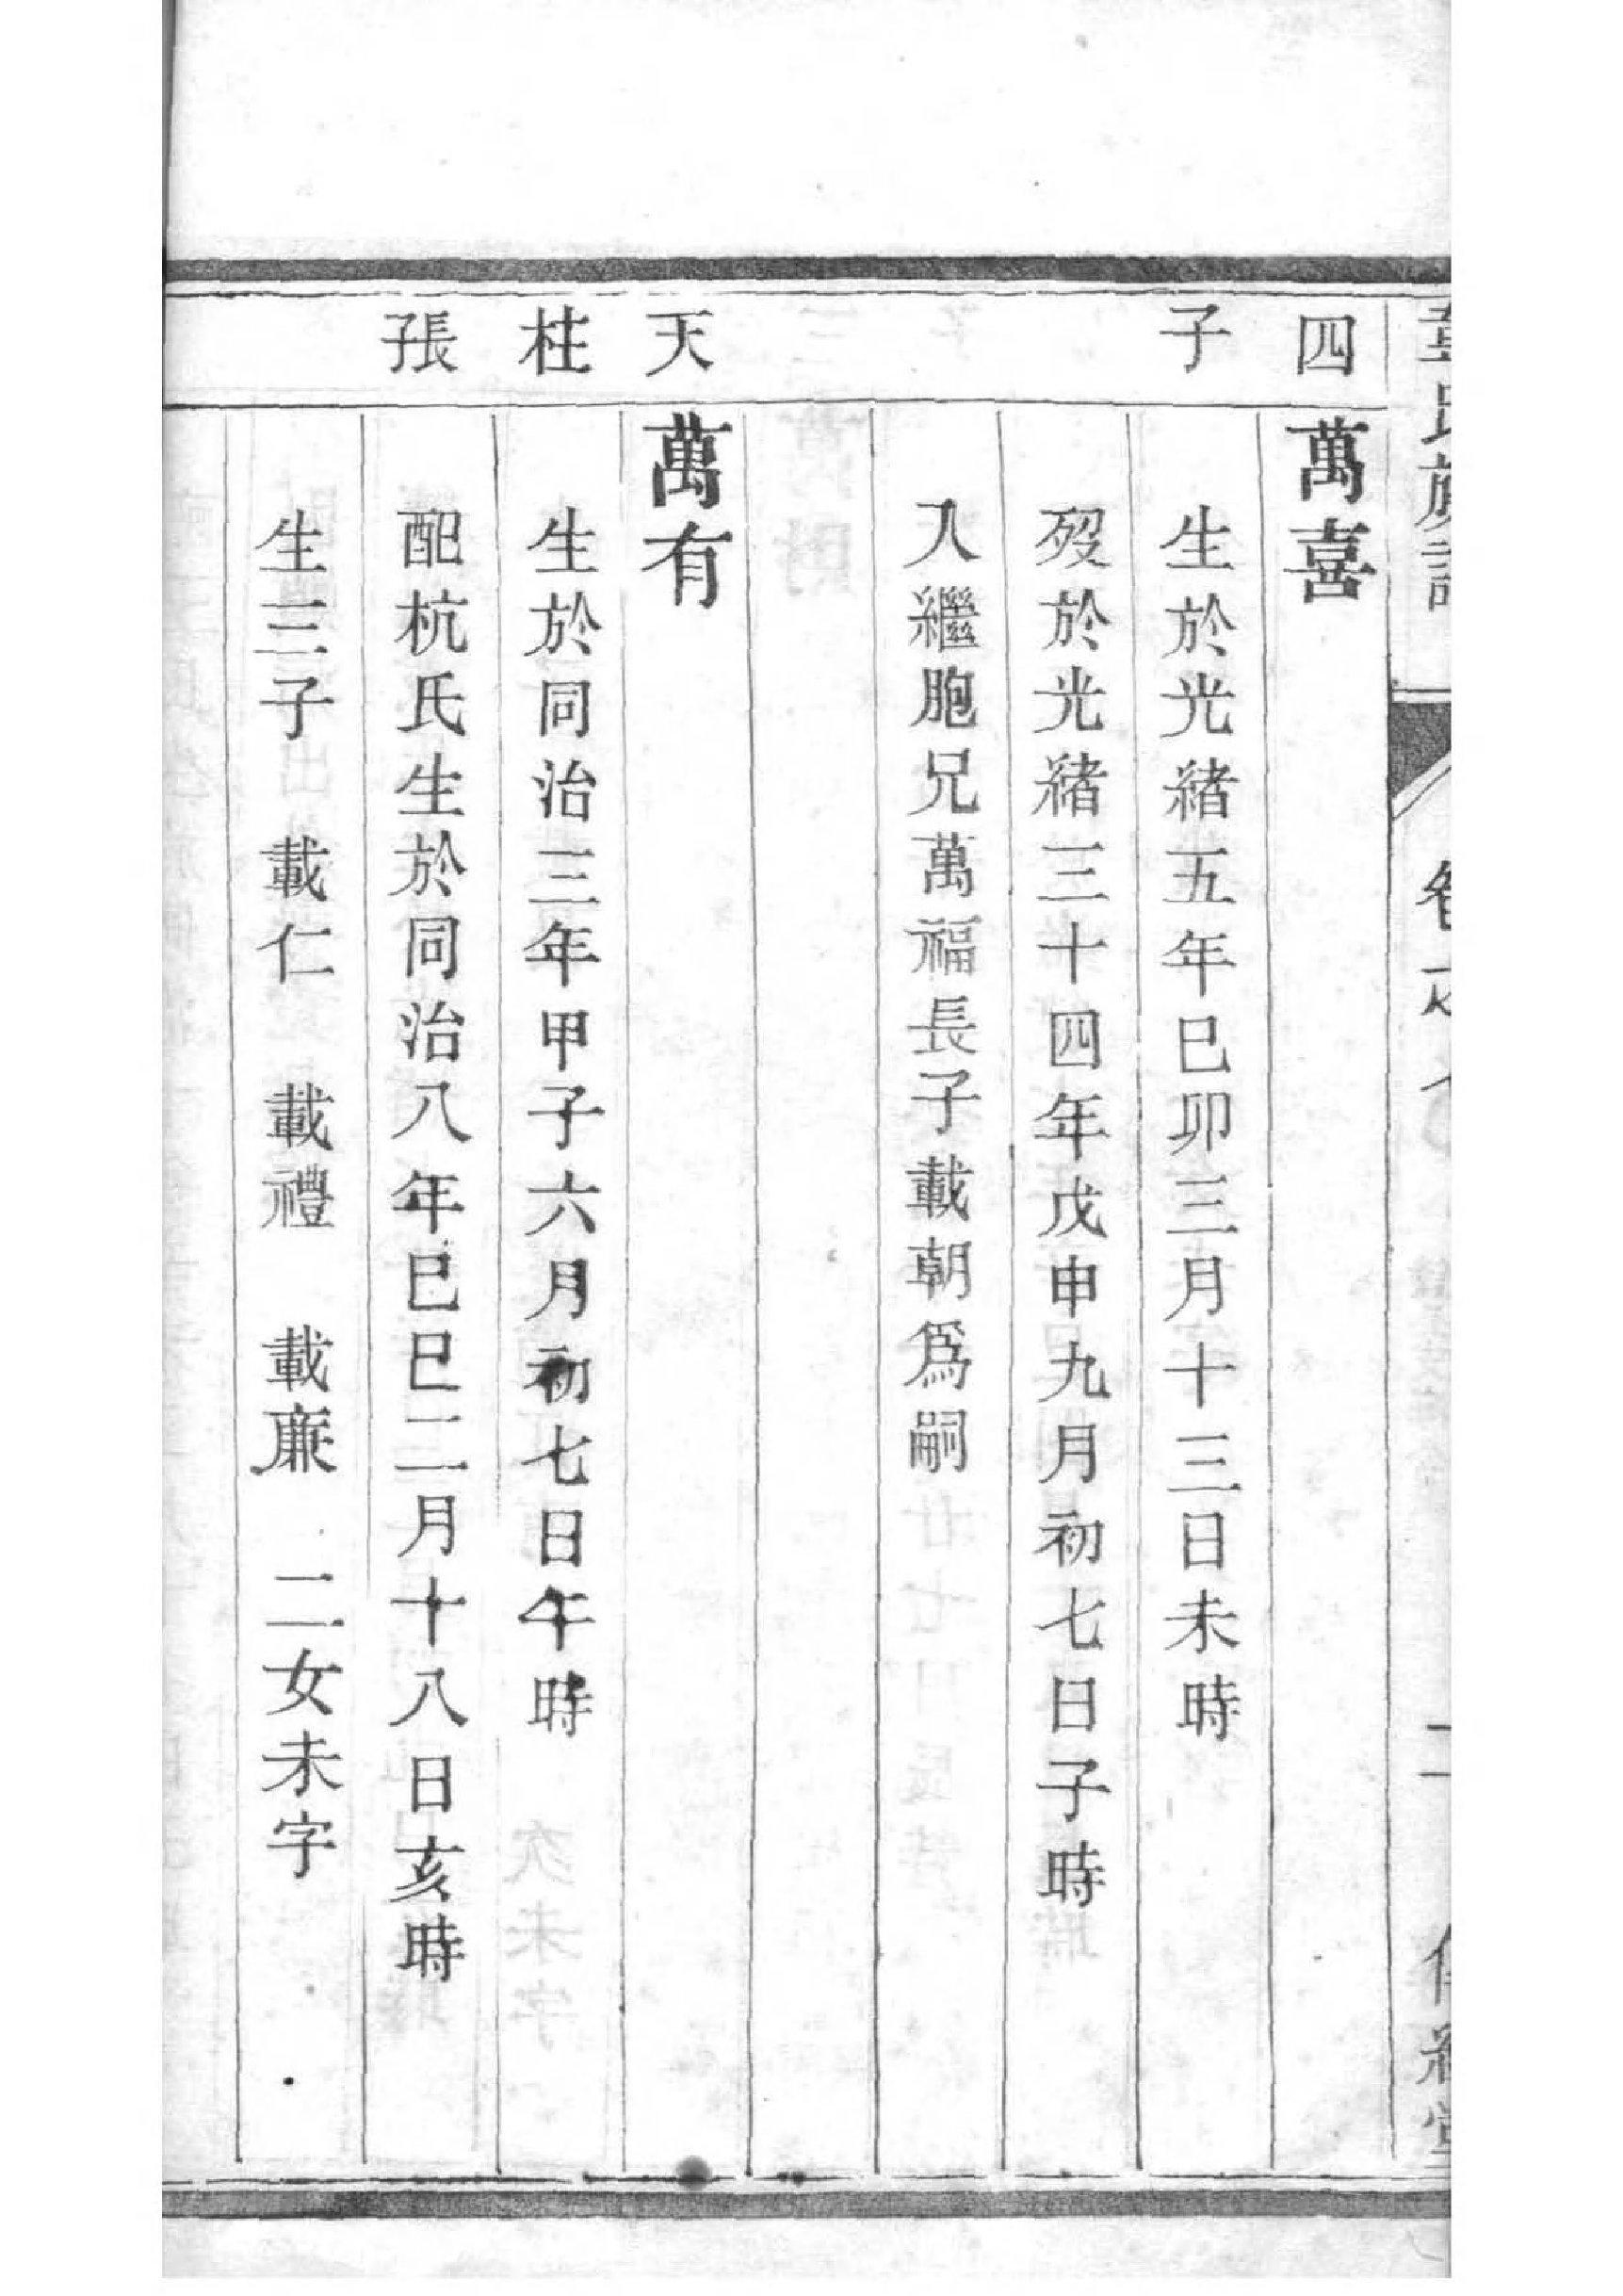 氏族譜
四
萬喜
子
生於光緒五年巳卯三月十三日未時
歿於光緒三十四年戊申九月初七日子時
入繼胞兄萬福長子載朝爲嗣
天
萬有
柱
生於同治三年甲子六月初七日午時
張
配杭氏生於同治八年巳巳二月十八日亥時
生三子 載仁 載禮 載廉 二女未字